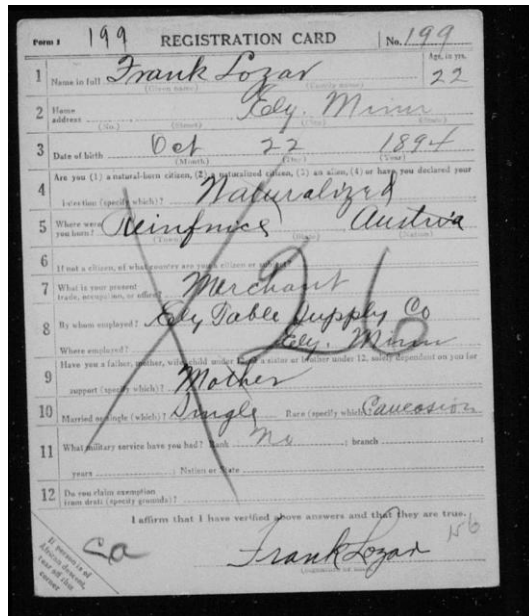 Form 1 199 REGISTRATION CARD No. 199
1 Name in full Frank Lozar Age, in yrs. 22
(Given name) (Family name)
2 Home address Ely, Minn
(No.) (Street) (City) (State)
3 Date of birth Oct 22 1894
(Month) (Day) (Year)
Are you (1) a natural-born citizen, (2) a naturalized citizen, (3) an alien, (4) or have you declared your
4 intention (specify which)? Naturalized
5 Where were you born? Reinfnice Austria
(Town) (State) (Nation)
6 If not a citizen, of what country are you a citizen or subject?
7 What is your present trade, occupation, or office? Merchant
8 By whom employed? Ely Table Supply Co
Where employed? Ely, Minn
9 Have you a father, mother, wife, child under 12, or a sister or brother under 12, solely dependent on you for
support (specify which)? Mother
10 Married or single (which)? Single Race (specify which)? Caucasion
11 What military service have you had? Rank No ; branch ;
years ; Nation or State
12 Do you claim exemption from draft (specify grounds)?
I affirm that I have verified above answers and that they are true.
Frank Lozar
(Signature or mark)
If person is of African descent, tear off this corner
X26